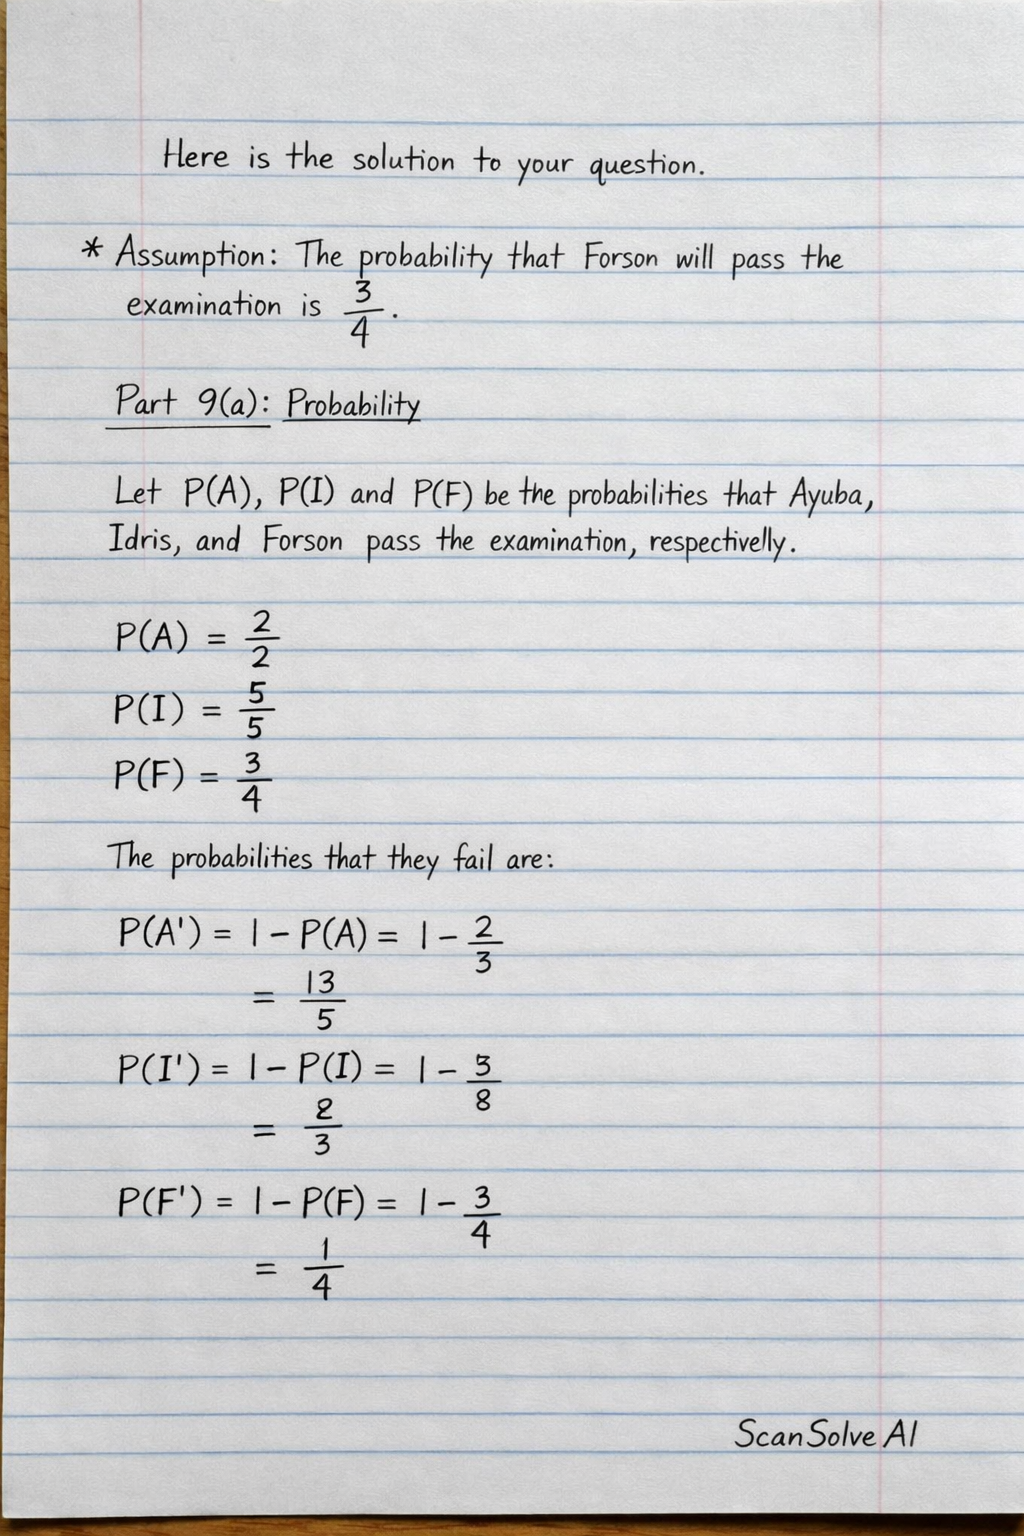 Here is the solution to your question.
* Assumption: The probability that Forson will pass the
examination is 3/4.
Part 9(a): Probability
Let P(A), P(I) and P(F) be the probabilities that Ayuba,
Idris, and Forson pass the examination, respectivelly.
P(A) = 2/2
P(I) = 5/5
P(F) = 3/4
The probabilities that they fail are:
P(A') = 1 - P(A) = 1 - 2/3
= 13/5
P(I') = 1 - P(I) = 1 - 5/8
= 8/3
P(F') = 1 - P(F) = 1 - 3/4
= 1/4
ScanSolve AI